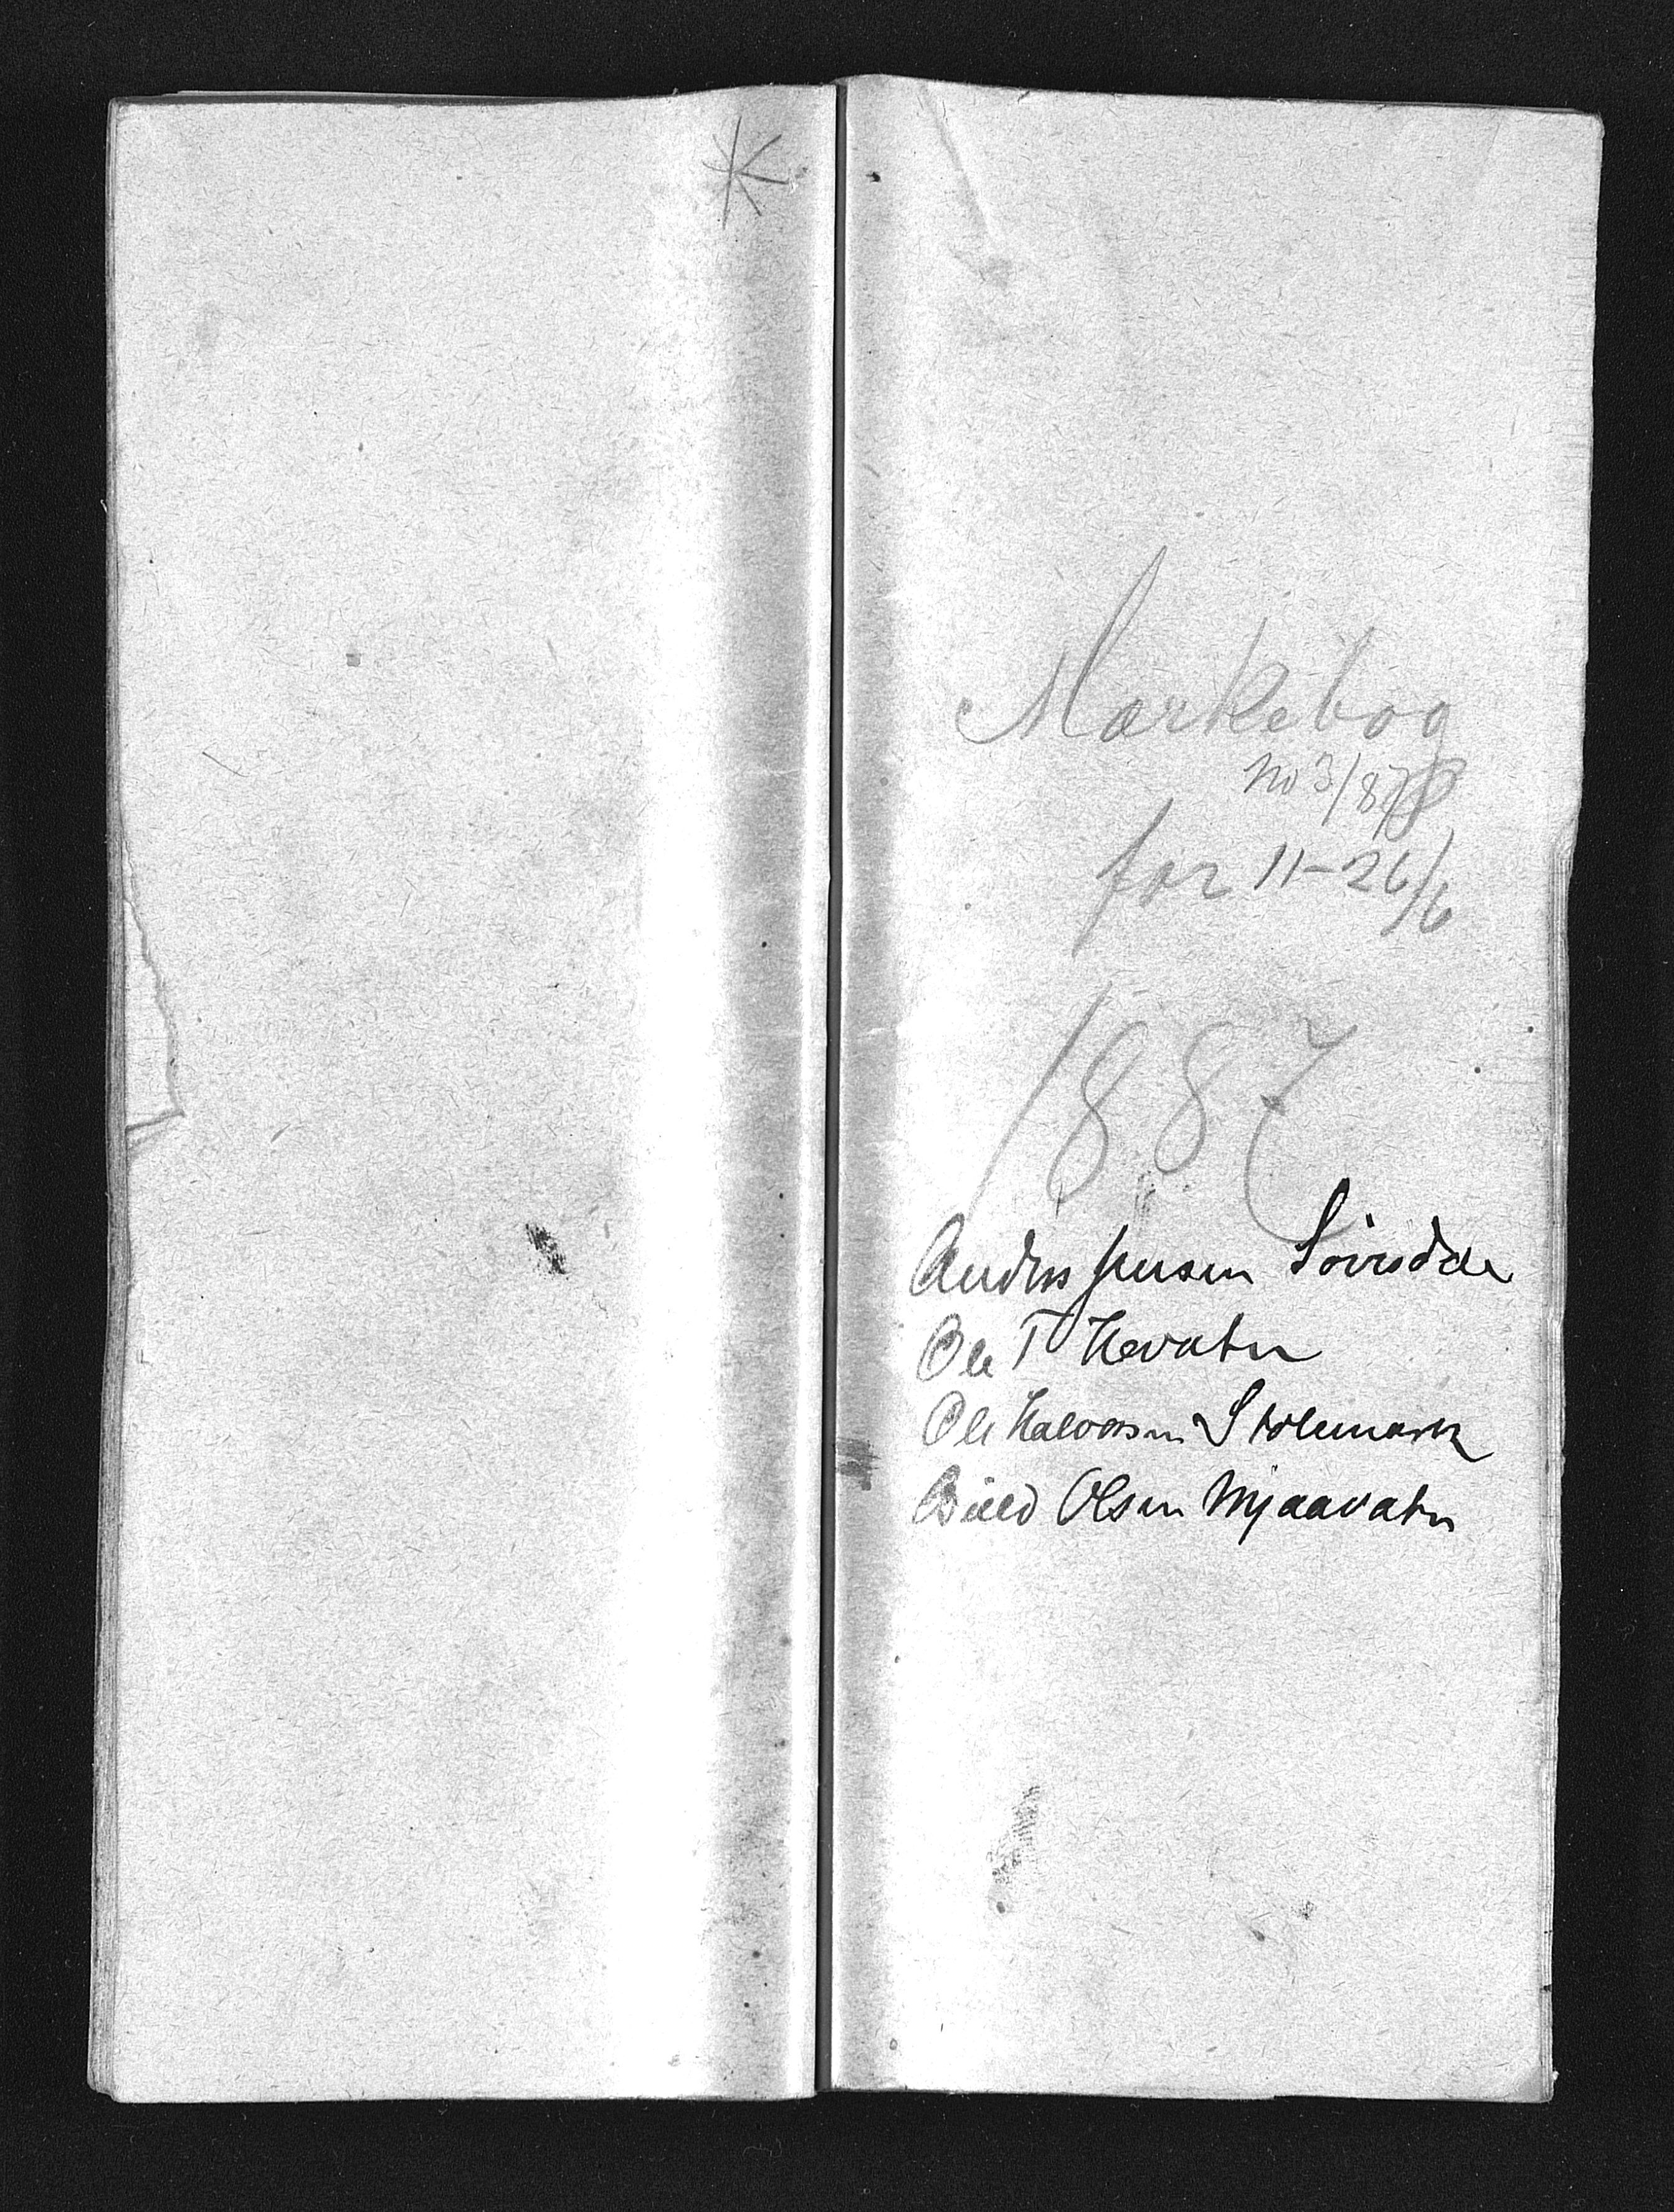 Markebog
No 3/87
for 11-26/6
1887
Anders Jensen
Ole T Hevatn
Ole Halvorsen Stölemark
Olsen Mjaavatn